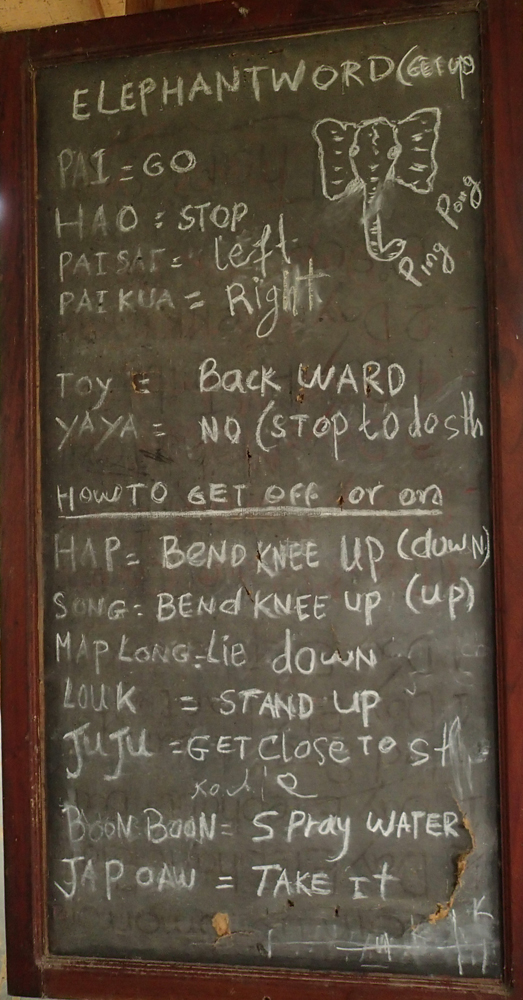 ELEPHANTWORD (GET UP
PAI = GO
HAO : STOP
PAI SAI = Left
PAI KUA = Right
Ping Pong
TOY = Back WARD
YAYA = NO (STOP to do sth
HOW TO GET OFF or on
HAP = BEND KNEE UP (down)
SONG = BENd KNEE up (up)
MAP LONG = LIE down
LOUK = STAND UP
JUJU = GET Close TO sth
BOON BOON = SPray WATER
JAP OAW = TAKE It